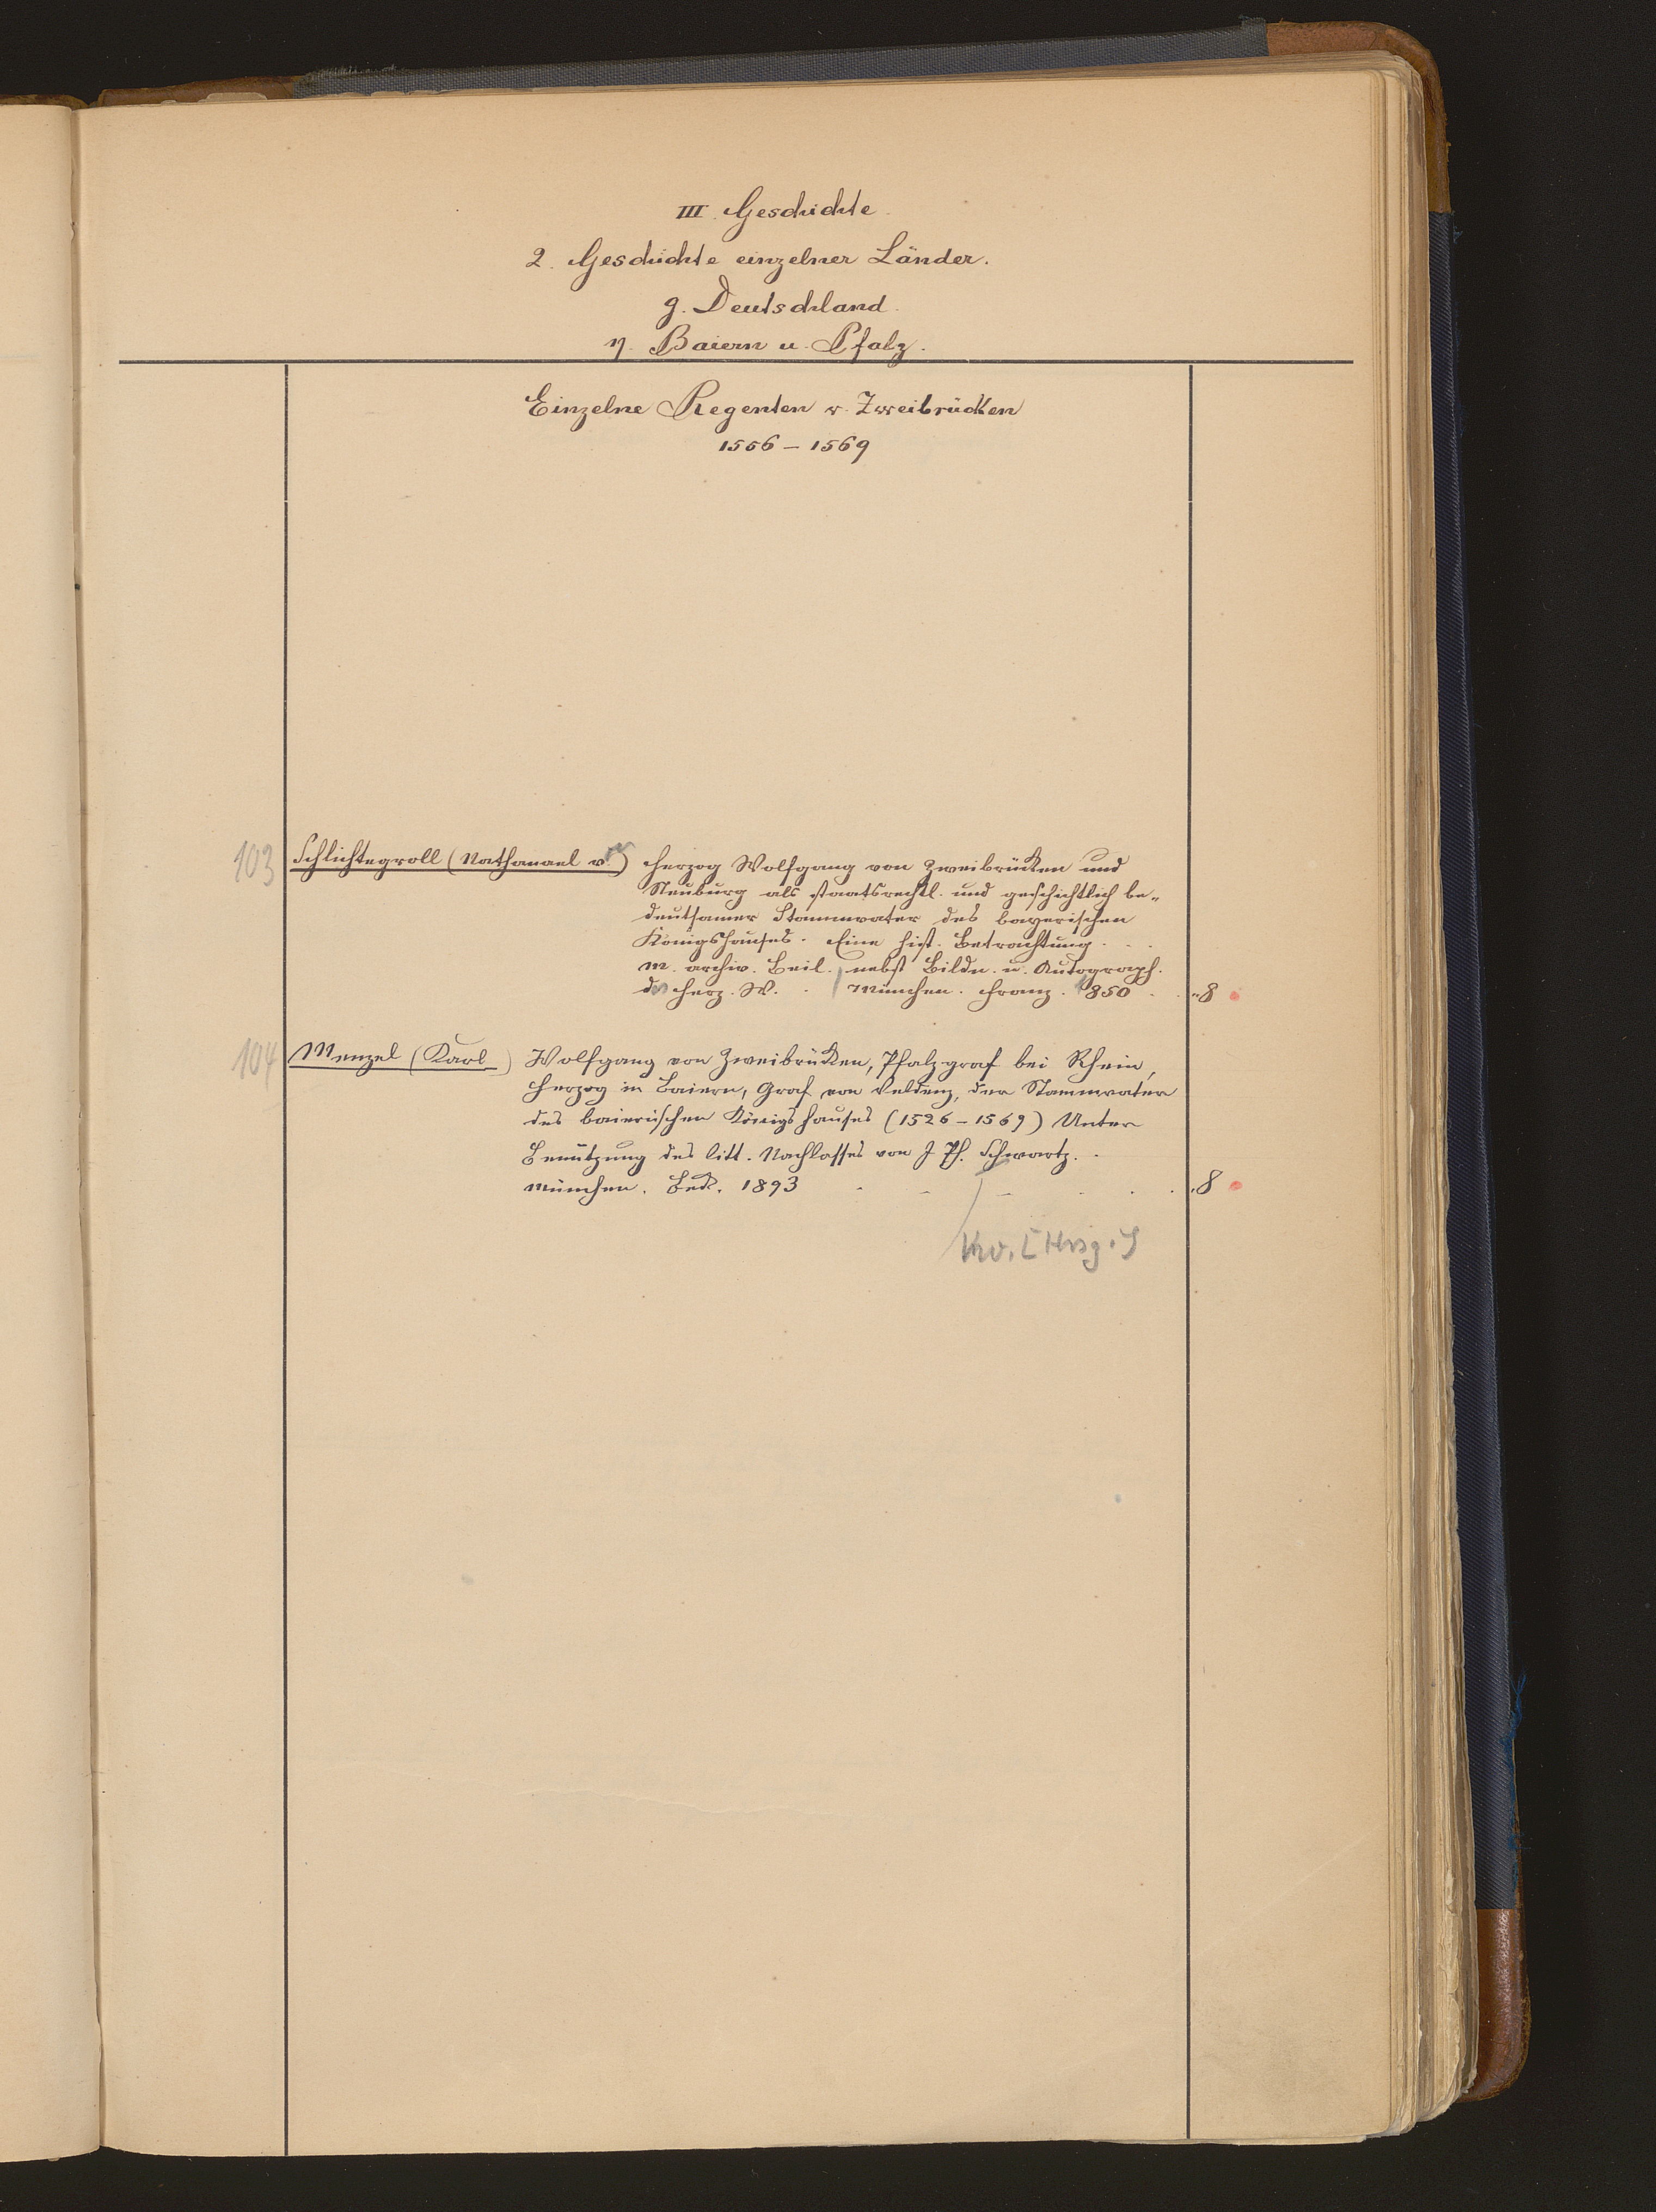 III. Geschichte.
2. Geschichte einzelner Länder.
g. Deutschland.
η. Baiern u. Pfalz.
Einzelne Regenten v. Zweibrücken
1556 – 1569
103 Schlichtegroll (Nathanael v.) Herzog Wolfgang von Zweibrücken und
Neuburg als staatsrechtl. und geschichtlich be„
deutsamer Stammvater des bayerischen
Königshauses. Eine hist. Betrachtung . .
m. archiv. Beil. nebst Bildn. u. Autograph.
des Herz. W. . München. Franz. 1850 . . „8
104 Menzel (Karl) Wolfgang von Zweibrücken, Pfalzgraf bei Rhein,
Herzog in Baiern, Graf von Veldenz, der Stammvater
des baierischen Königshauses (1526 – 1569) Unter
Benützung des litt. Nachlasses von J. Ph. Schwartz. .
München. Beck. 1893 . . . . . „8
[Hrsg.]